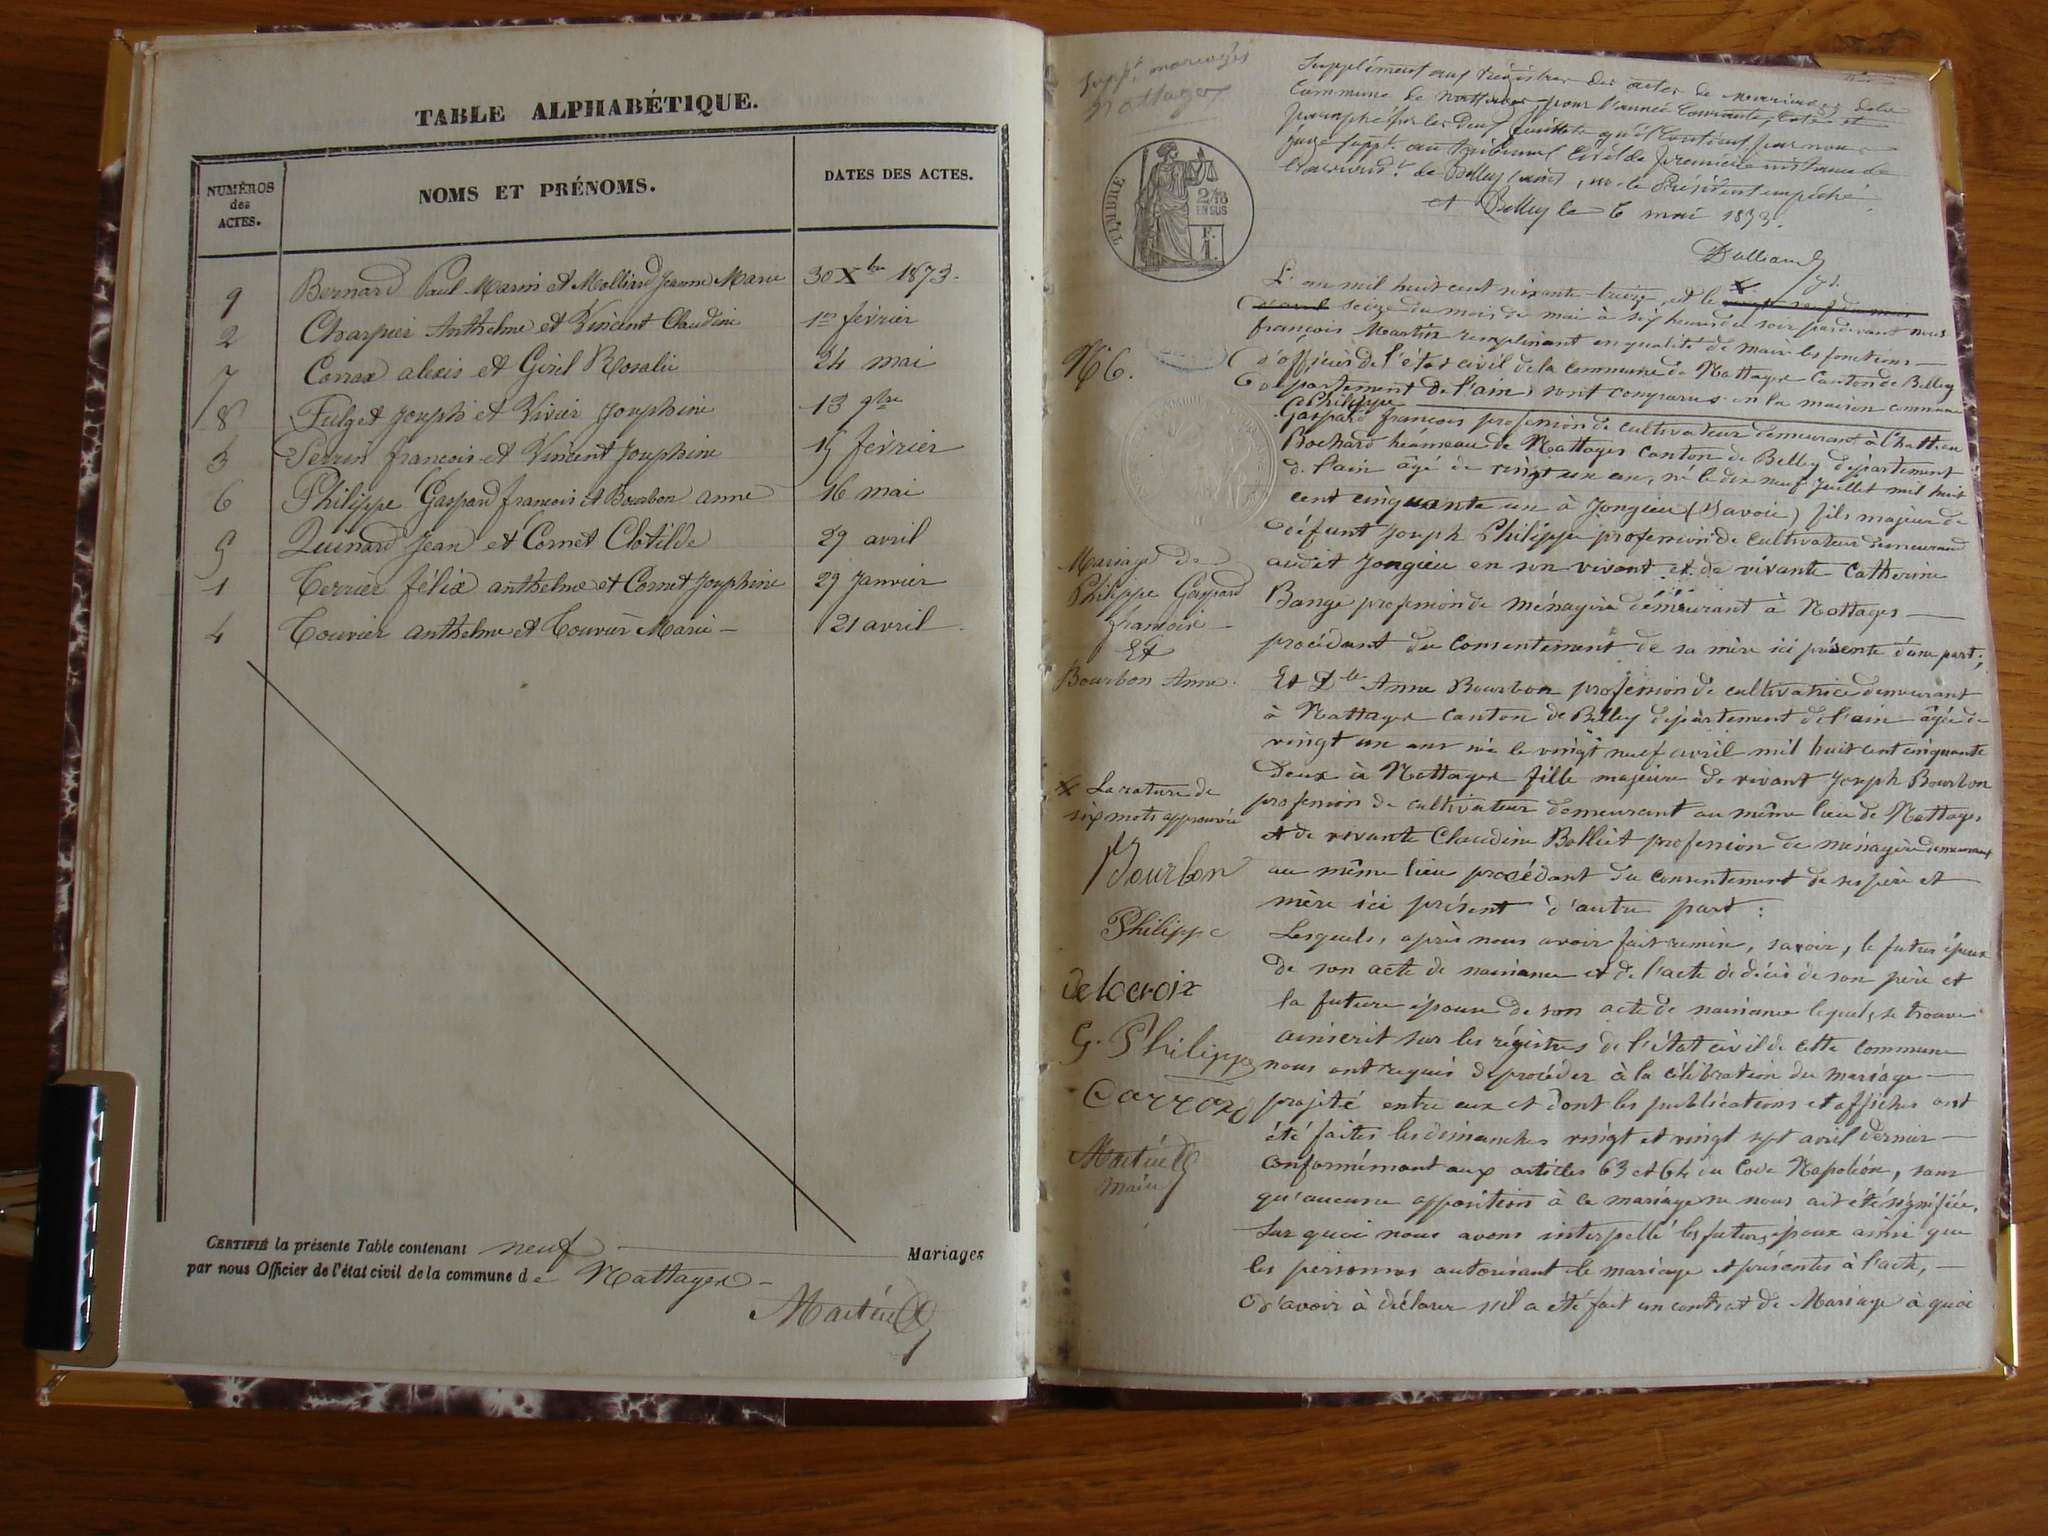 TABLE ALPHABÉTIQUE.
NUMÉROS des ACTES.
NOMS ET PRÉNOMS.
DATES DES ACTES.
9 Bernard Paul Marin et Molliard Jeanne Marie 30 Xbre 1873.
2 Charpier Anthelme et Vincent Claudine 1er février
7 Carrax alexis et Girel Rosalie 24 mai
8 Fulget Joseph et Vivier Josephine 13 9bre
3 Perrin francois et Vincent Josephine 15 février
6 Philippe Gaspard francois et Bourbon anne 16 mai
5 Quinard Jean et Cornet Clotilde 29 avril
1 Terrier félix anthelme et Cornet Josephine 29 Janvier
4 Touvier anthelme et Touvier Marie - 21 avril.
CERTIFIÉ la présente Table contenant neuf Mariages
par nous Officier de l'état civil de la commune de Nattages -
Martin
Suppt. mariages
Nattages
Supplément aux registres des actes de mariages de la
Commune de Nattages pour l'année Courante, Coté et
paraphé par les deux feuillets qu'il Contient, par nous
Juge Suppt. au tribunal Civil de première instance de
de Belley (ain), le Président empêché.
Belley le 6 mai 1873.
TIMBRE
2/10
EN SUS
L'an mil huit cent soixante-treize, et le
seize du mois de mai à six heures du soir pardevant nous
françois Martin remplissant en qualité de maire les fonctions
d'officier de l'état civil de la commune de Nattages Canton de Belley
département de l'ain, sont comparus en la maison commune
Philippe
Gaspard françois profession de cultivateur demeurant à
Bochard hameau de Nattages canton de Belley département
de l'ain âgé de vingt un an, né le dix neuf Juillet mil huit
cent cinquante un à Jongieu (Savoie) fils majeur de
défunt Joseph Philippe profession de cultivateur demeurant
audit Jongieu en son vivant et de vivante Catherine
Bange profession de ménagère demeurant à Nattages
procédant du consentement de sa mère ici présente d'une part;
Et Dlle Anne Bourbon profession de cultivatrice demeurant
à Nattages canton de Belley département de l'ain âgée de
vingt un ans née le vingt neuf avril mil huit cent cinquante
deux à Nattages fille majeure de vivant Joseph Bourbon
profession de cultivateur demeurant au même lieu de Nattages
et de vivante Claudine Bolliet profession de ménagère demeurant
au même lieu procédant du consentement de ses père et
mère ici présent d'autre part:
Lesquels, après nous avoir fait remise, savoir, le futur époux
de son acte de naissance et de l'acte de décès de son père et
la future épouse de son acte de naissance lequel, se trouve
ainscrit sur les régistres de l'état civil de cette commune
nous ont requis de procéder à la célébration du mariage
projeté entre eux et dont les publications et affiches ont
été faites les dimanches vingt et vingt sept avril dernier
conformément aux articles 63 et 64 du Code Napoléon, sans
qu'aucune opposition à ce mariage ne nous ait été signifiée.
Sur quoi nous avons interpellé les futurs époux ainsi que
les personnes autorisant le mariage et présentes à l'acte,
d'avoir à déclarer s'il a été fait un contrat de Mariage à quoi
N° 6.
Mariage de
Philippe Gaspard
francois
Et
Bourbon Anne.
La rature de
six mots approuvée
Bourbon
Philippe
delacroix
G. Philippe
Carraz
Martin
Maire